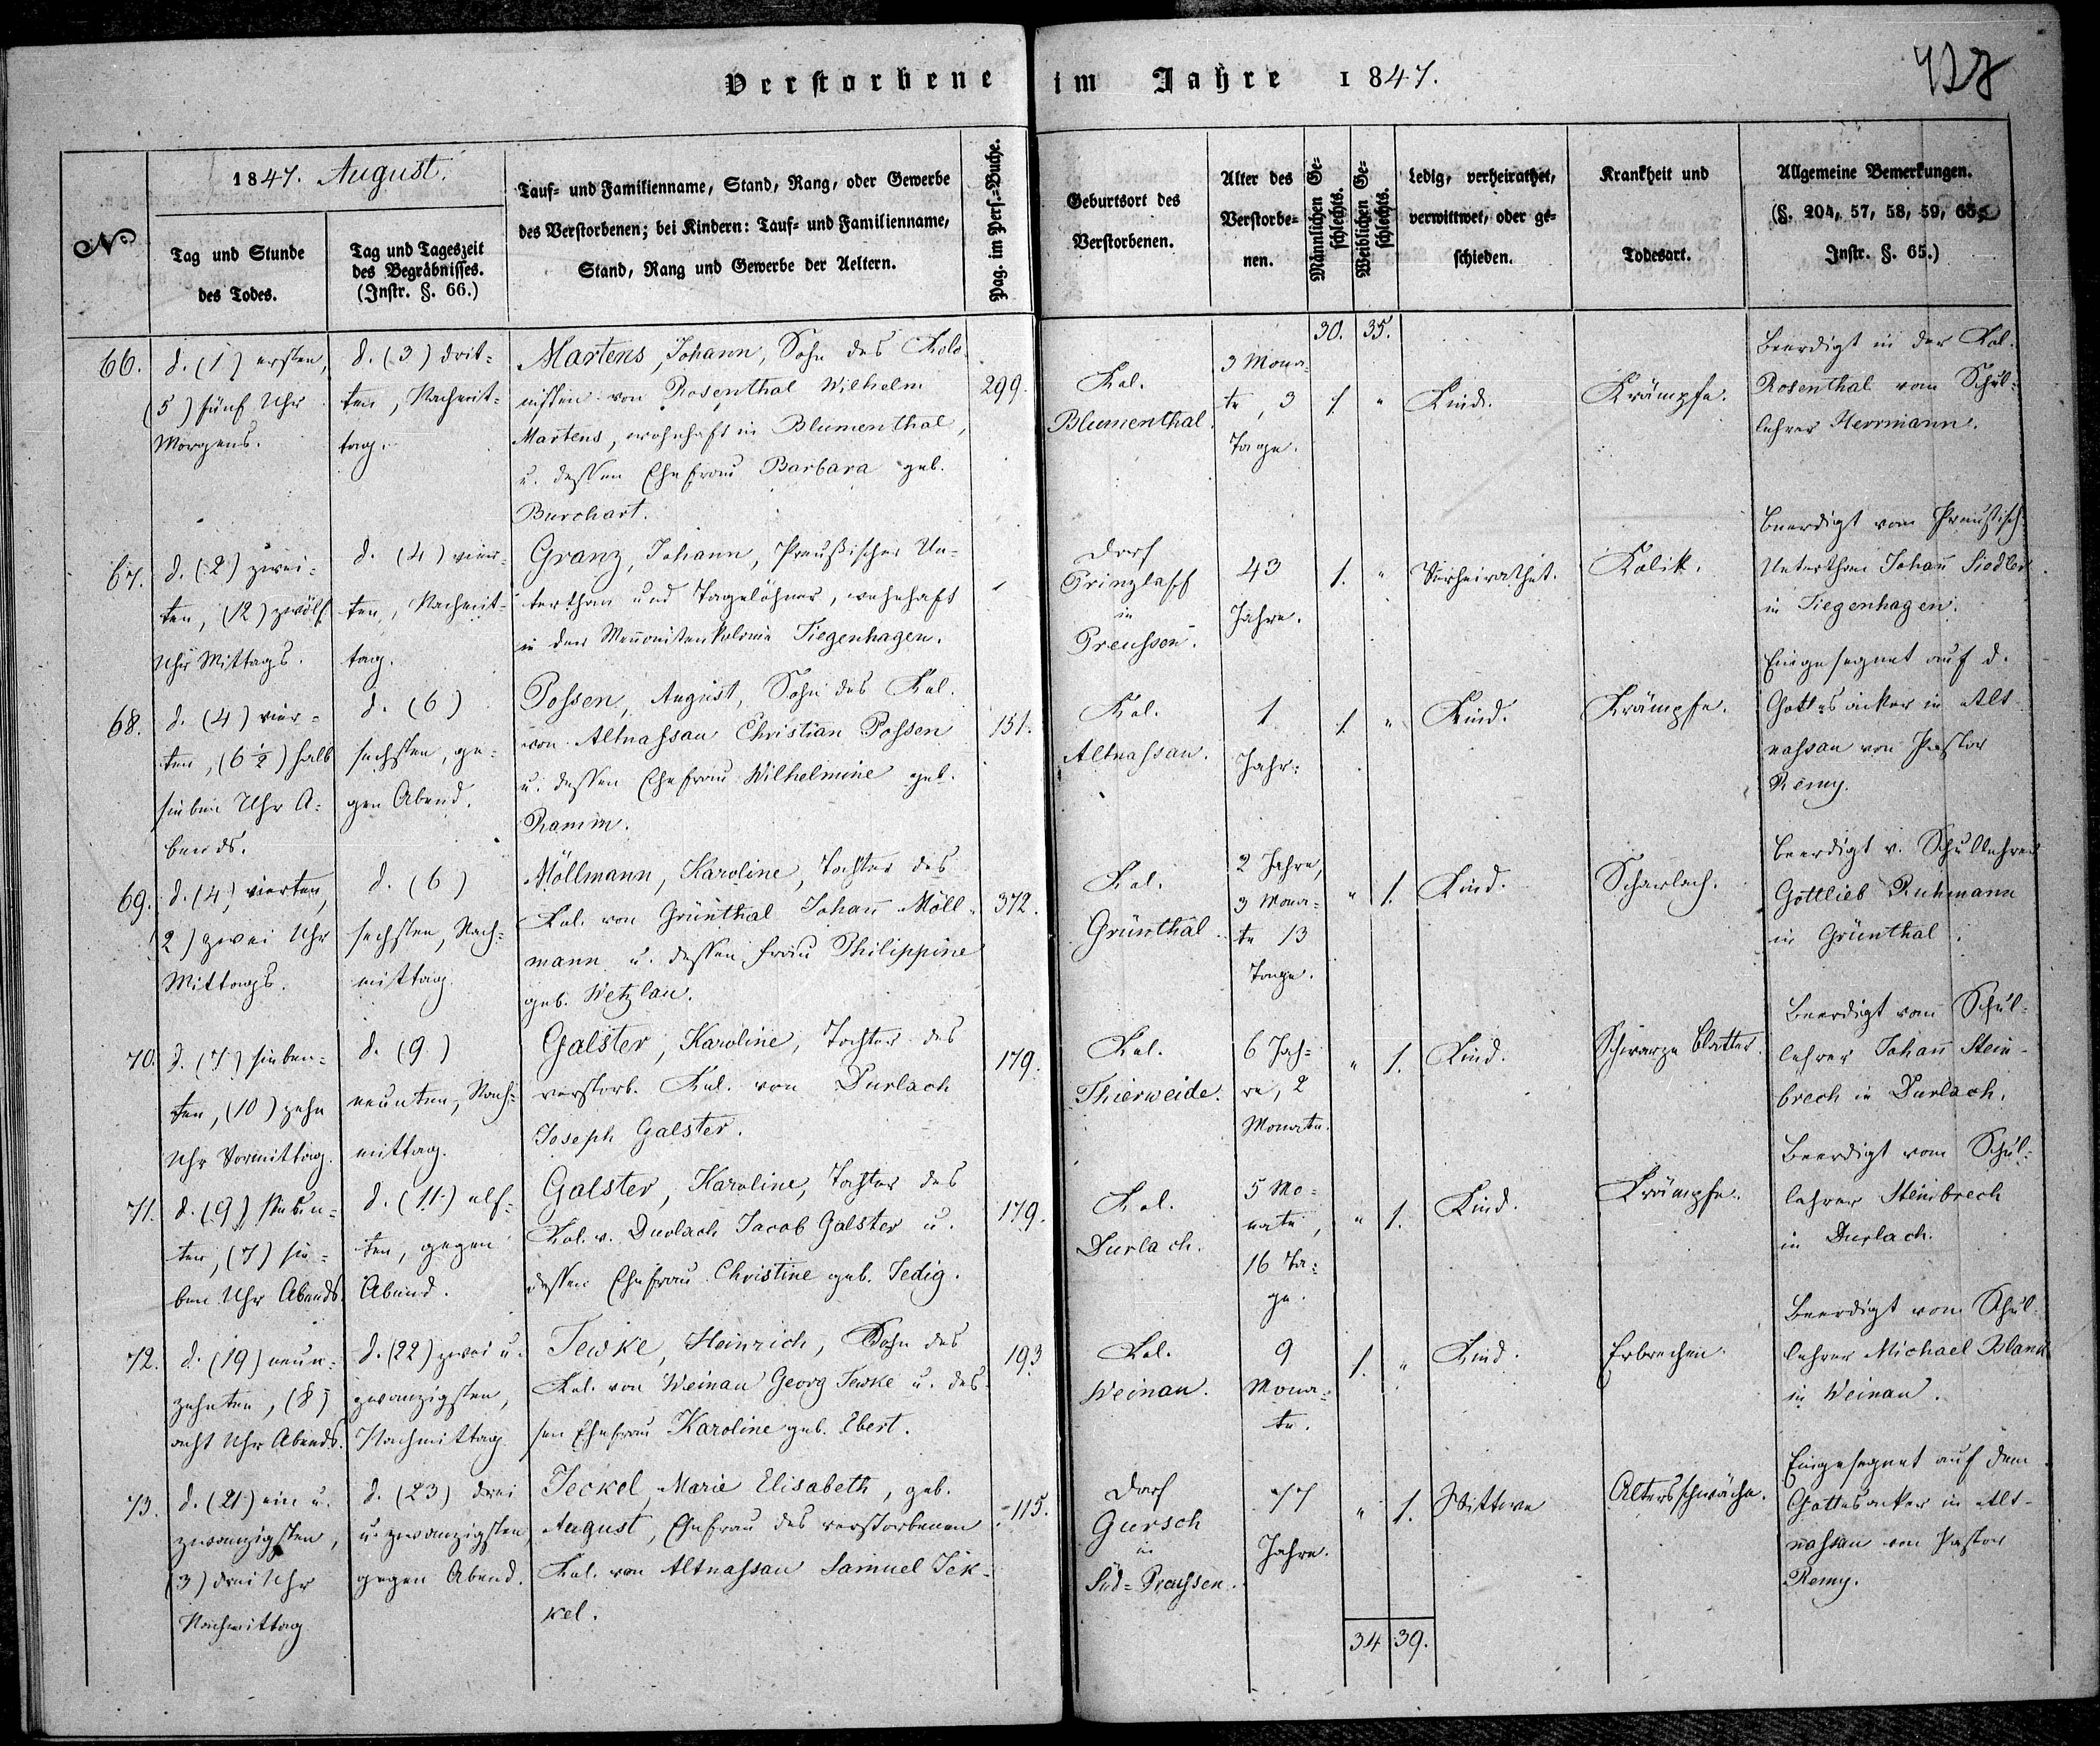 Verstorbene im Jahre 1847.
428
No
1847. August.
Tag und Stunde
des Todes.
Tag und Tageszeit
des Begräbnisses.
(Instr. §. 66.)
Tauf- und Familienname, Stand, Rang, oder Gewerbe
des Verstorbenen; bei Kindern: Tauf- und Familienname,
Stand, Rang und Gewerbe der Aeltern.
Pag. im Pers.-Buche.
Geburtsort des
Verstorbenen.
Alter des
Verstorbe-
nen.
Männlichen Ge-
schlechts.
Weiblichen Ge-
schlechts.
Ledig, verheirathet,
verwittwet, oder ge-
schieden.
Krankheit und
Todesart.
Allgemeine Bemerkungen.
(§. 204, 57, 58, 59, 65,
Instr. §. 65.)
30. 35.
66.
d. (1) ersten,
(5) fünf Uhr
Morgens.
d. (3) drit-
ten, Nachmit-
tag.
Martens, Johann, Sohn des Kolo-
nisten von Rosenthal Wilhelm
Martens, wohnhaft in Blumenthal,
u. dessen Ehefrau Barbara geb.
Burchart.
299.
Kol.
Blumenthal.
3 Mona-
te, 3
Tage.
1 "
Kind.
Krämpfe.
Beerdigt in der Kol.
Rosenthal vom Schul-
lehrer Herrmann.
67.
d. (2) zwei-
ten, (12) zwölf
Uhr Mittags.
d. (4) vier-
ten, Nachmit-
tag.
Granz, Johann, Preußischer Un-
terthan und Tagelöhner, wohnhaft
in der Menonistenkolonie Tiegenhagen.
Dorf
Prinzlaff
in
Preussen.
43
Jahre.
1. "
Verheirathet.
Kolik.
Beerdigt vom Preußisch.
Unterthan Johan Siedler
in Tiegenhagen.
68.
d. (4) vier-
ten, (6½) halb
sieben Uhr A-
bends.
d. (6)
sechsten, ge-
gen Abend.
Possen, August, Sohn des Kol.
von Altnassau Christian Possen
u. dessen Ehefrau Wilhelmine geb.
Ramm.
151.
Kol.
Altnassau.
1
Jahr.
1 "
Kind.
Krämpfe.
Eingesegnet auf d.
Gottesacker in Alt-
nassau von Pastor
Remy.
69.
d. (4) vierten,
2) zwei Uhr
Mittags.
d. (6)
sechsten, Nach-
mittag.
Möllmann, Karoline, Tochter des
Kol. von Grünthal Johan Möll-
mann u. dessen Frau Philippine
geb. Wetzlau.
372.
Kol.
Grünthal.
2 Jahre,
3 Mona-
te 13
Tage.
" 1.
Kind.
Scharlach.
Beerdigt v. Schullehrer
Gottlieb Ruhmann
in Grünthal.
70.
d. (7) sieben-
ten, (10) zehn
Uhr Vormittag.
d. (9)
neunten, Nach-
mittag.
Galster, Karoline, Tochter des
verstorb. Kol. von Durlach
Joseph Galster.
179.
Kol.
Thierweide.
6 Jah-
re, 2
Monate.
" 1.
Kind.
Schwarze Blatter.
Beerdigt vom Schul-
lehrer Johan Stein-
brech in Durlach.
71.
d. (9)
ten, (7) sie-
ben Uhr Abends.
d. (11) elf-
ten, gegen
Abend.
Galster, Karoline, Tochter des
Kol. v. Durlach Jacob Galster u.
dessen Ehefrau Christine geb. Jedig.
179.
Kol.
Durlach.
5 Mo-
nate,
16 Ta-
ge.
" 1.
Kind.
Krämpfe.
Beerdigt vom Schul-
lehrer Steinbrech
in Durlach.
72.
d. (19) neun-
zehnten, (8)
acht Uhr Abends.
d. (22) zwei u.
zwanzigsten,
Nachmittag.
Jewke, Heinrich, Sohn des
Kol. von Weinau Georg Jewke u. des-
sen Ehefrau Karoline geb. Ebert.
193
Kol.
Weinau.
9
Mona-
te.
1. "
Kind.
Erbrechen.
Beerdigt vom Schul-
lehrer Michael Blank
in Weinau.
73.
d. (21) ein u.
zwanzigsten,
(3) drei Uhr
Nachmittag
d. (23) drei
u. zwanzigsten,
gegen Abend.
Jeckel, Marie Elisabeth, geb.
August, Ehefrau des verstorbenen
Kol. von Altnassau Samuel Jek-
kel.
115.
Dorf
Gursch
in
Süd-Preussen.
77
Jahre.
" 1.
Wittwe
Altersschwäche.
Eingesegnet auf dem
Gottesacker in Alt-
nassau von Pastor
Remy.
34 39.